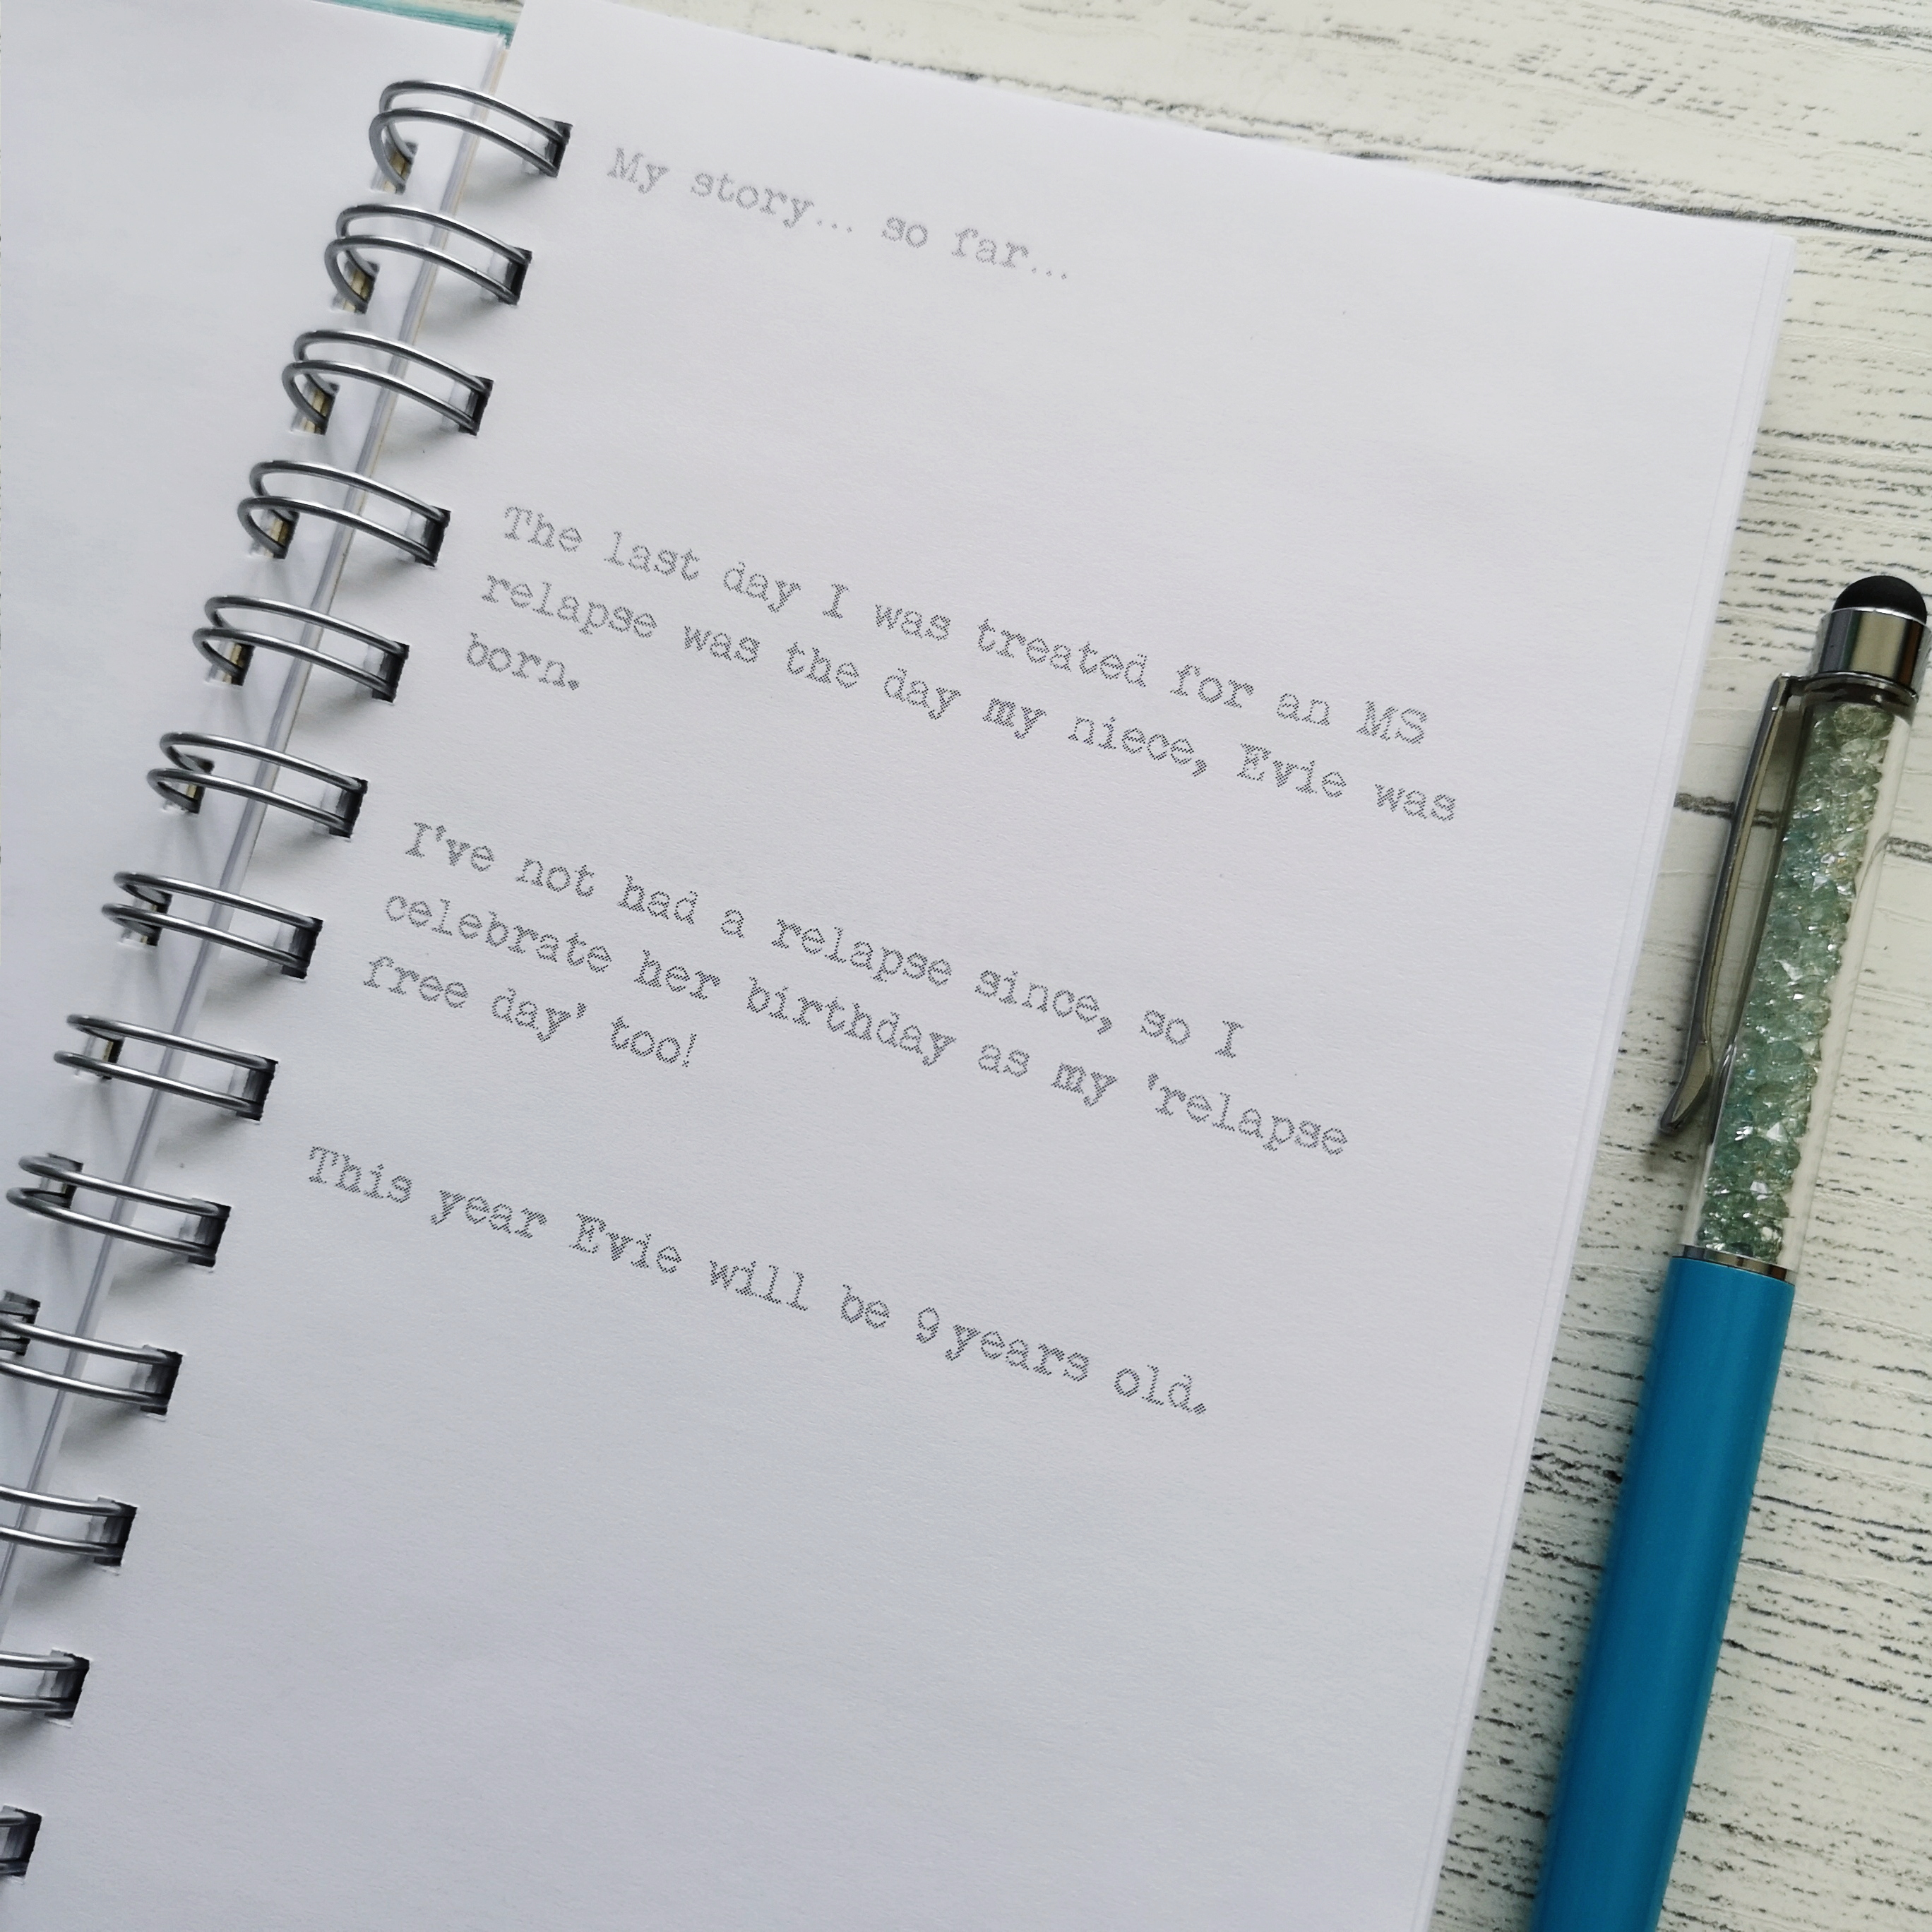 My story... so far...
The last day I was treated for an MS
relapse was the day my niece, Evie was
born.
I've not had a relapse since, so I
celebrate her birthday as my 'relapse
free day' too!
This year Evie will be 9 years old.